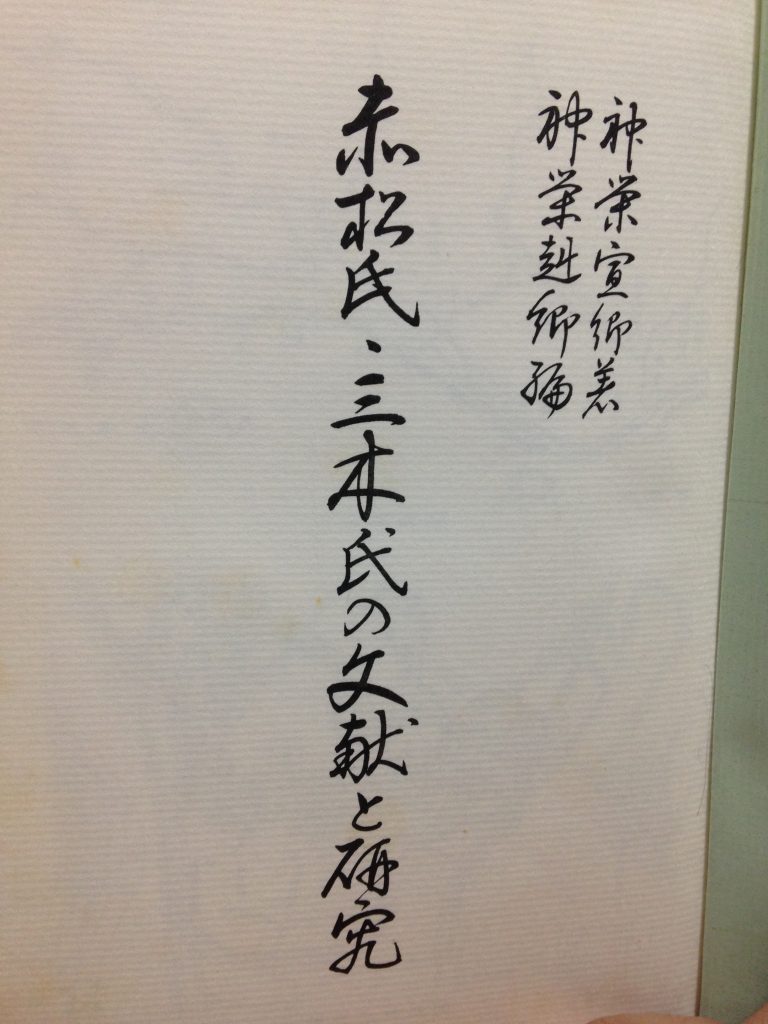 神栄宣郷著
神栄赳郷編
赤松氏、三木氏の文献と研究